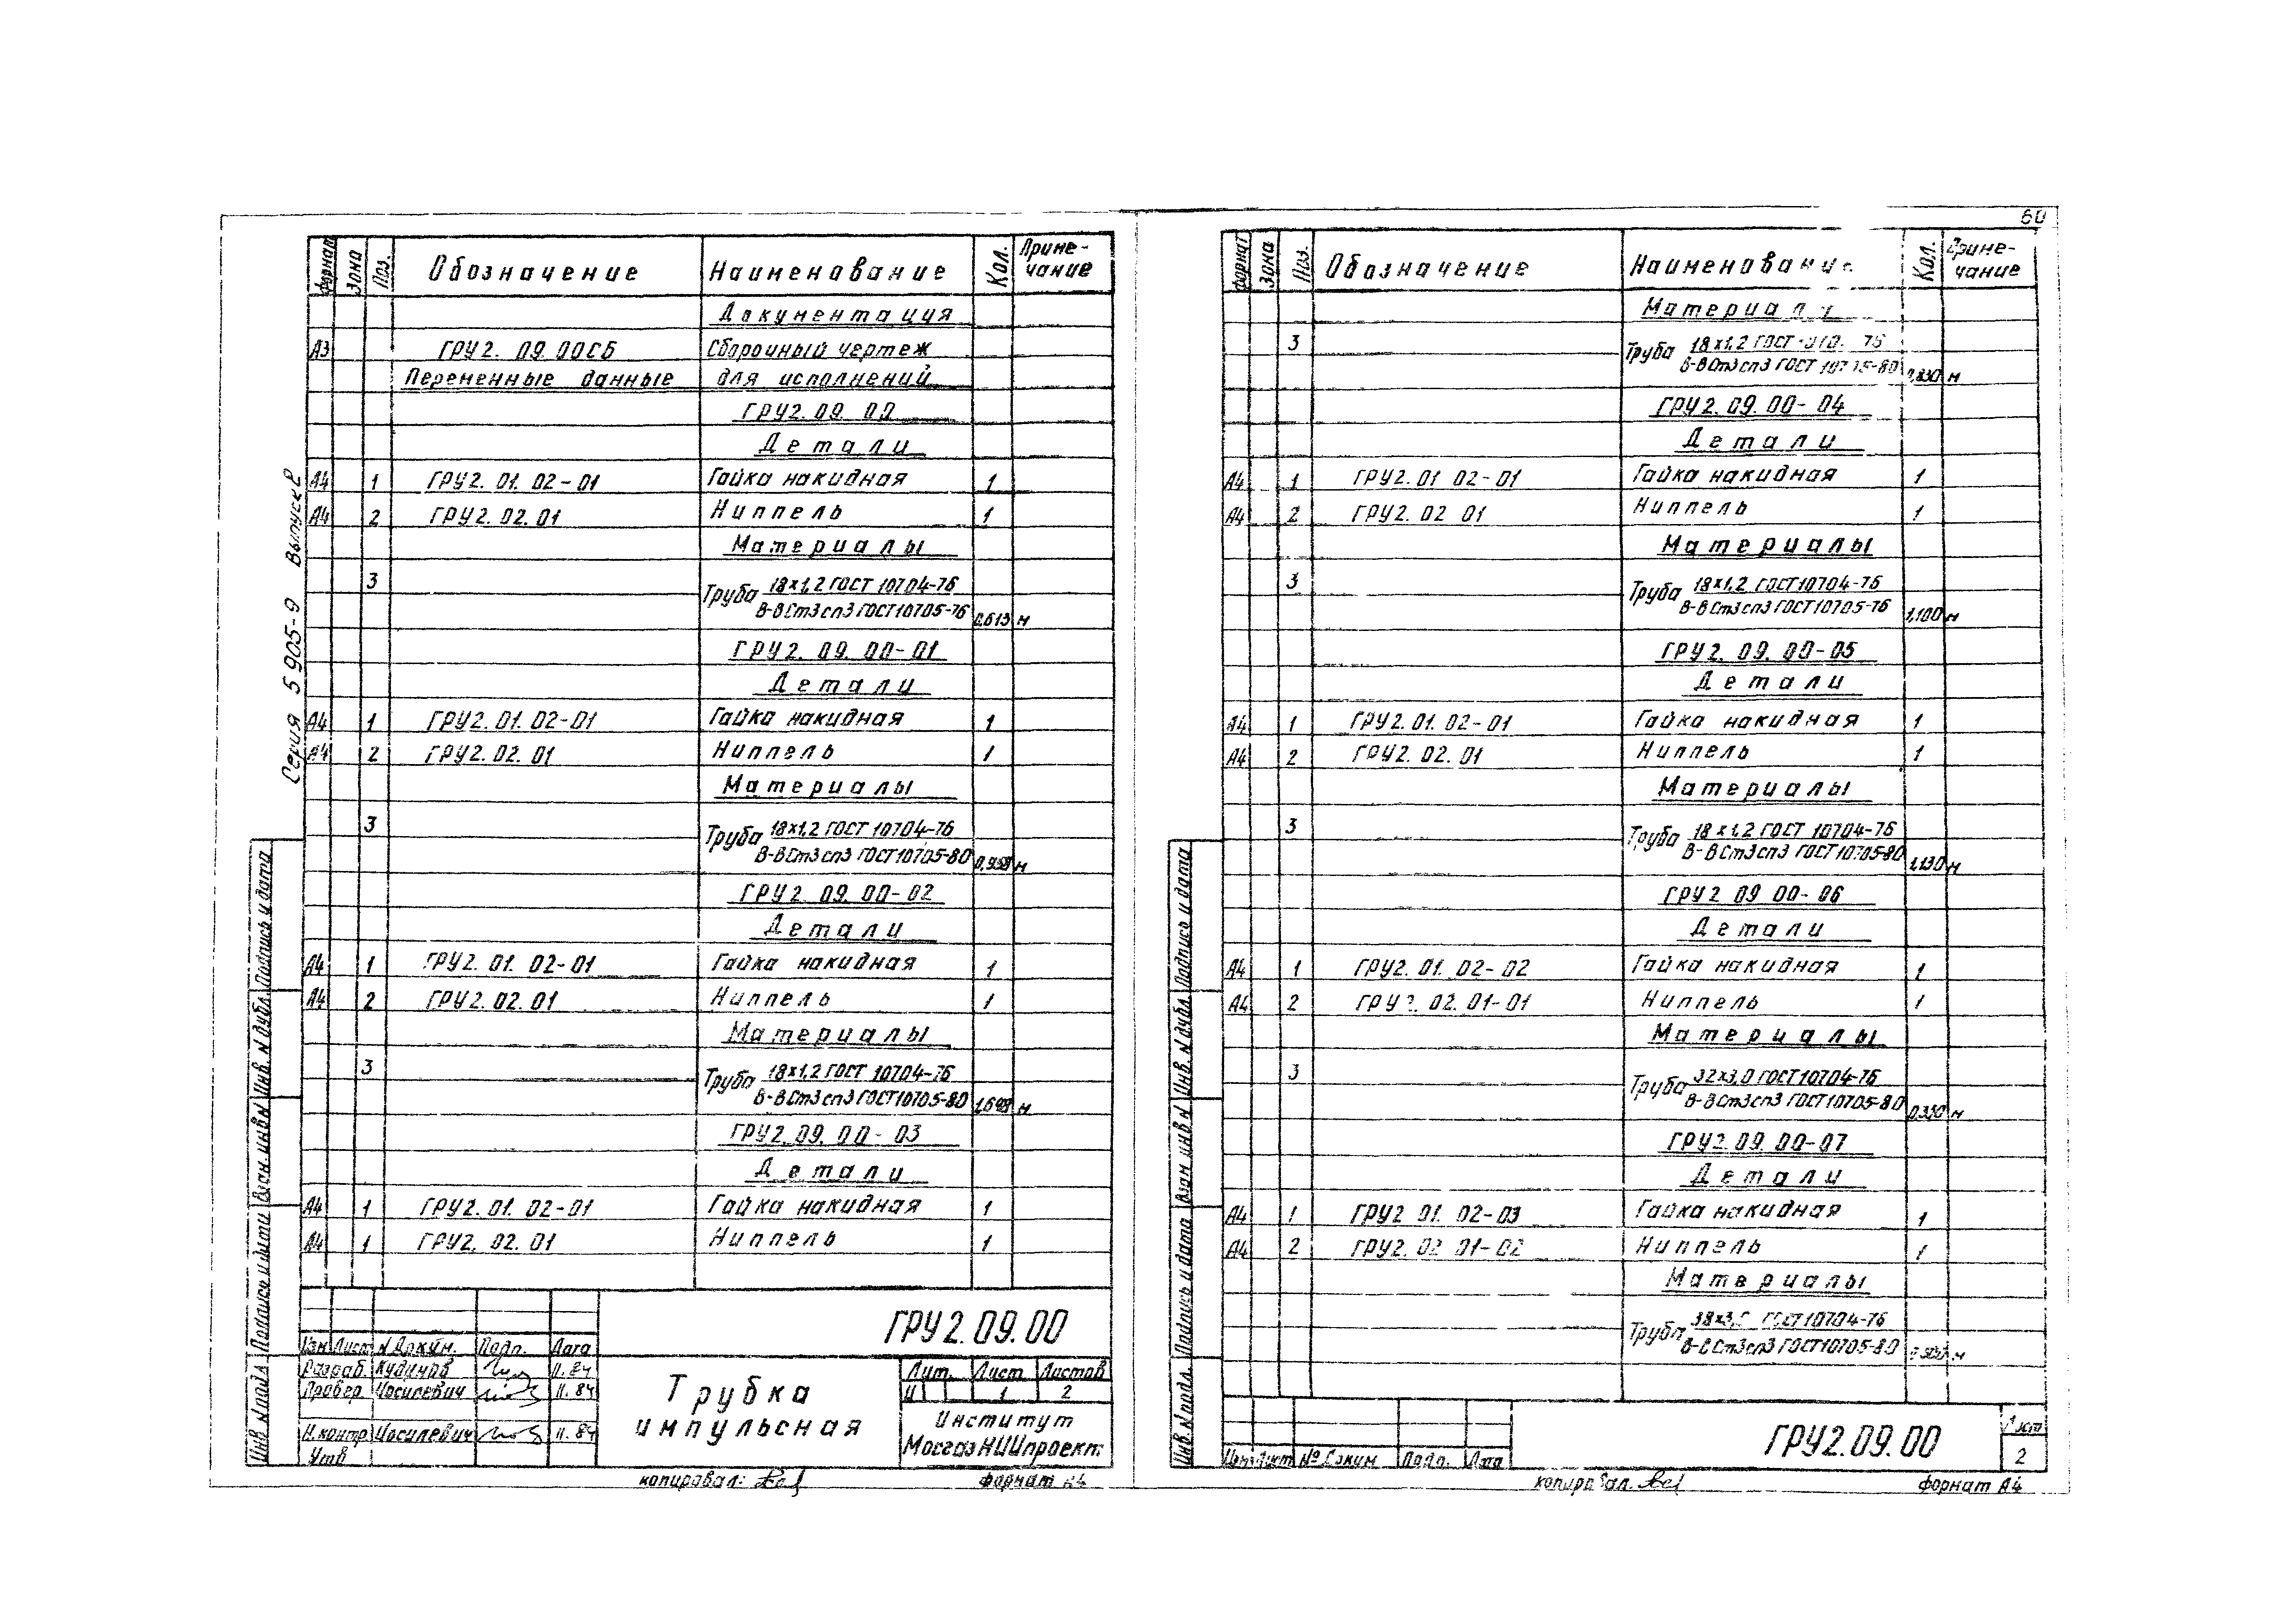 60
Серия 5 905-9 Выпуск 2
Формат Зона Поз. Обозначение Наименование Кол. Примечание
Документация
А3 ГРУ2. 09.00СБ Сборочный чертеж
Переменные данные для исполнений
ГРУ2. 09. 00
Детали
А4 1 ГРУ2. 01. 02-01 Гайка накидная 1
А4 2 ГРУ2. 02. 01 Ниппель 1
Материалы
3 Труба 18×1,2 ГОСТ 10704-76
В-ВСт3сп3 ГОСТ10705-76 0,613 м
ГРУ2. 09. 00-01
Детали
А4 1 ГРУ2. 01. 02-01 Гайка накидная 1
А4 2 ГРУ2. 02. 01 Ниппель 1
Материалы
3 Труба 18×1,2 ГОСТ 10704-76
В-ВСт3сп3 ГОСТ10705-80 м
ГРУ2 09. 00-02
Детали
А4 1 ГРУ2. 01. 02-01 Гайка накидная 1
А4 2 ГРУ2. 02. 01 Ниппель 1
Материалы
3 Труба 18×1,2 ГОСТ 10704-76
В-ВСт3сп3 ГОСТ10705-80 м
ГРУ2. 09. 00-03
Детали
А4 1 ГРУ2. 01. 02-01 Гайка накидная 1
А4 1 ГРУ2. 02. 01 Ниппель 1
ГРУ2.09.00
Изм Лист N Докум. Подп. Дата
Разраб. Кудинов 11.84
Провер Иосилевич 11.84
Н.контр Иосилевич 11.84
Утв
Трубка
импульсная
Лит. Лист Листов
И 1 2
Институт
МосгазНИИпроект
копировал: формат А4
Инв. N подл. Подпись и дата Взам. инв N Инв. N дубл. Подпись и дата
Формат Зона Поз. Обозначение Наименование Кол. Примечание
Материалы
3 Труба 18×1,2 ГОСТ 76
В-ВСт3сп3 ГОСТ 10705-80 м
ГРУ2. 09. 00-04
Детали
А4 1 ГРУ2. 01 02-01 Гайка накидная 1
А4 2 ГРУ2. 02 01 Ниппель 1
Материалы
3 Труба 18×1,2 ГОСТ10704-76
В-ВСт3сп3 ГОСТ10705-76 1,100 м
ГРУ2. 09. 00-05
Детали
А4 1 ГРУ2. 01. 02-01 Гайка накидная 1
А4 2 ГРУ2. 02. 01 Ниппель 1
Материалы
3 Труба 18×1,2 ГОСТ 10704-76
В-ВСт3сп3 ГОСТ10705-80 1,130 м
ГРУ2 09 00-06
Детали
А4 1 ГРУ2. 01. 02-02 Гайка накидная 1
А4 2 ГРУ2. 02. 01-01 Ниппель 1
Материалы
3 Труба 32×3,0 ГОСТ10704-76
В-ВСт3сп3 ГОСТ10705-80 0,330 м
ГРУ2. 09. 00-07
Детали
А4 1 ГРУ2 01. 02-03 Гайка накидная 1
А4 2 ГРУ2. 02 01-02 Ниппель 1
Материалы
Труба ГОСТ10704-76
ГОСТ10705-80 м
Изм Лист № Докум Подп. Дата
ГРУ2.09.00
Лист
2
копировал. формат А4
Инв. N подл. Подпись и дата Взам инв N Инв. N дубл. Подпись и дата